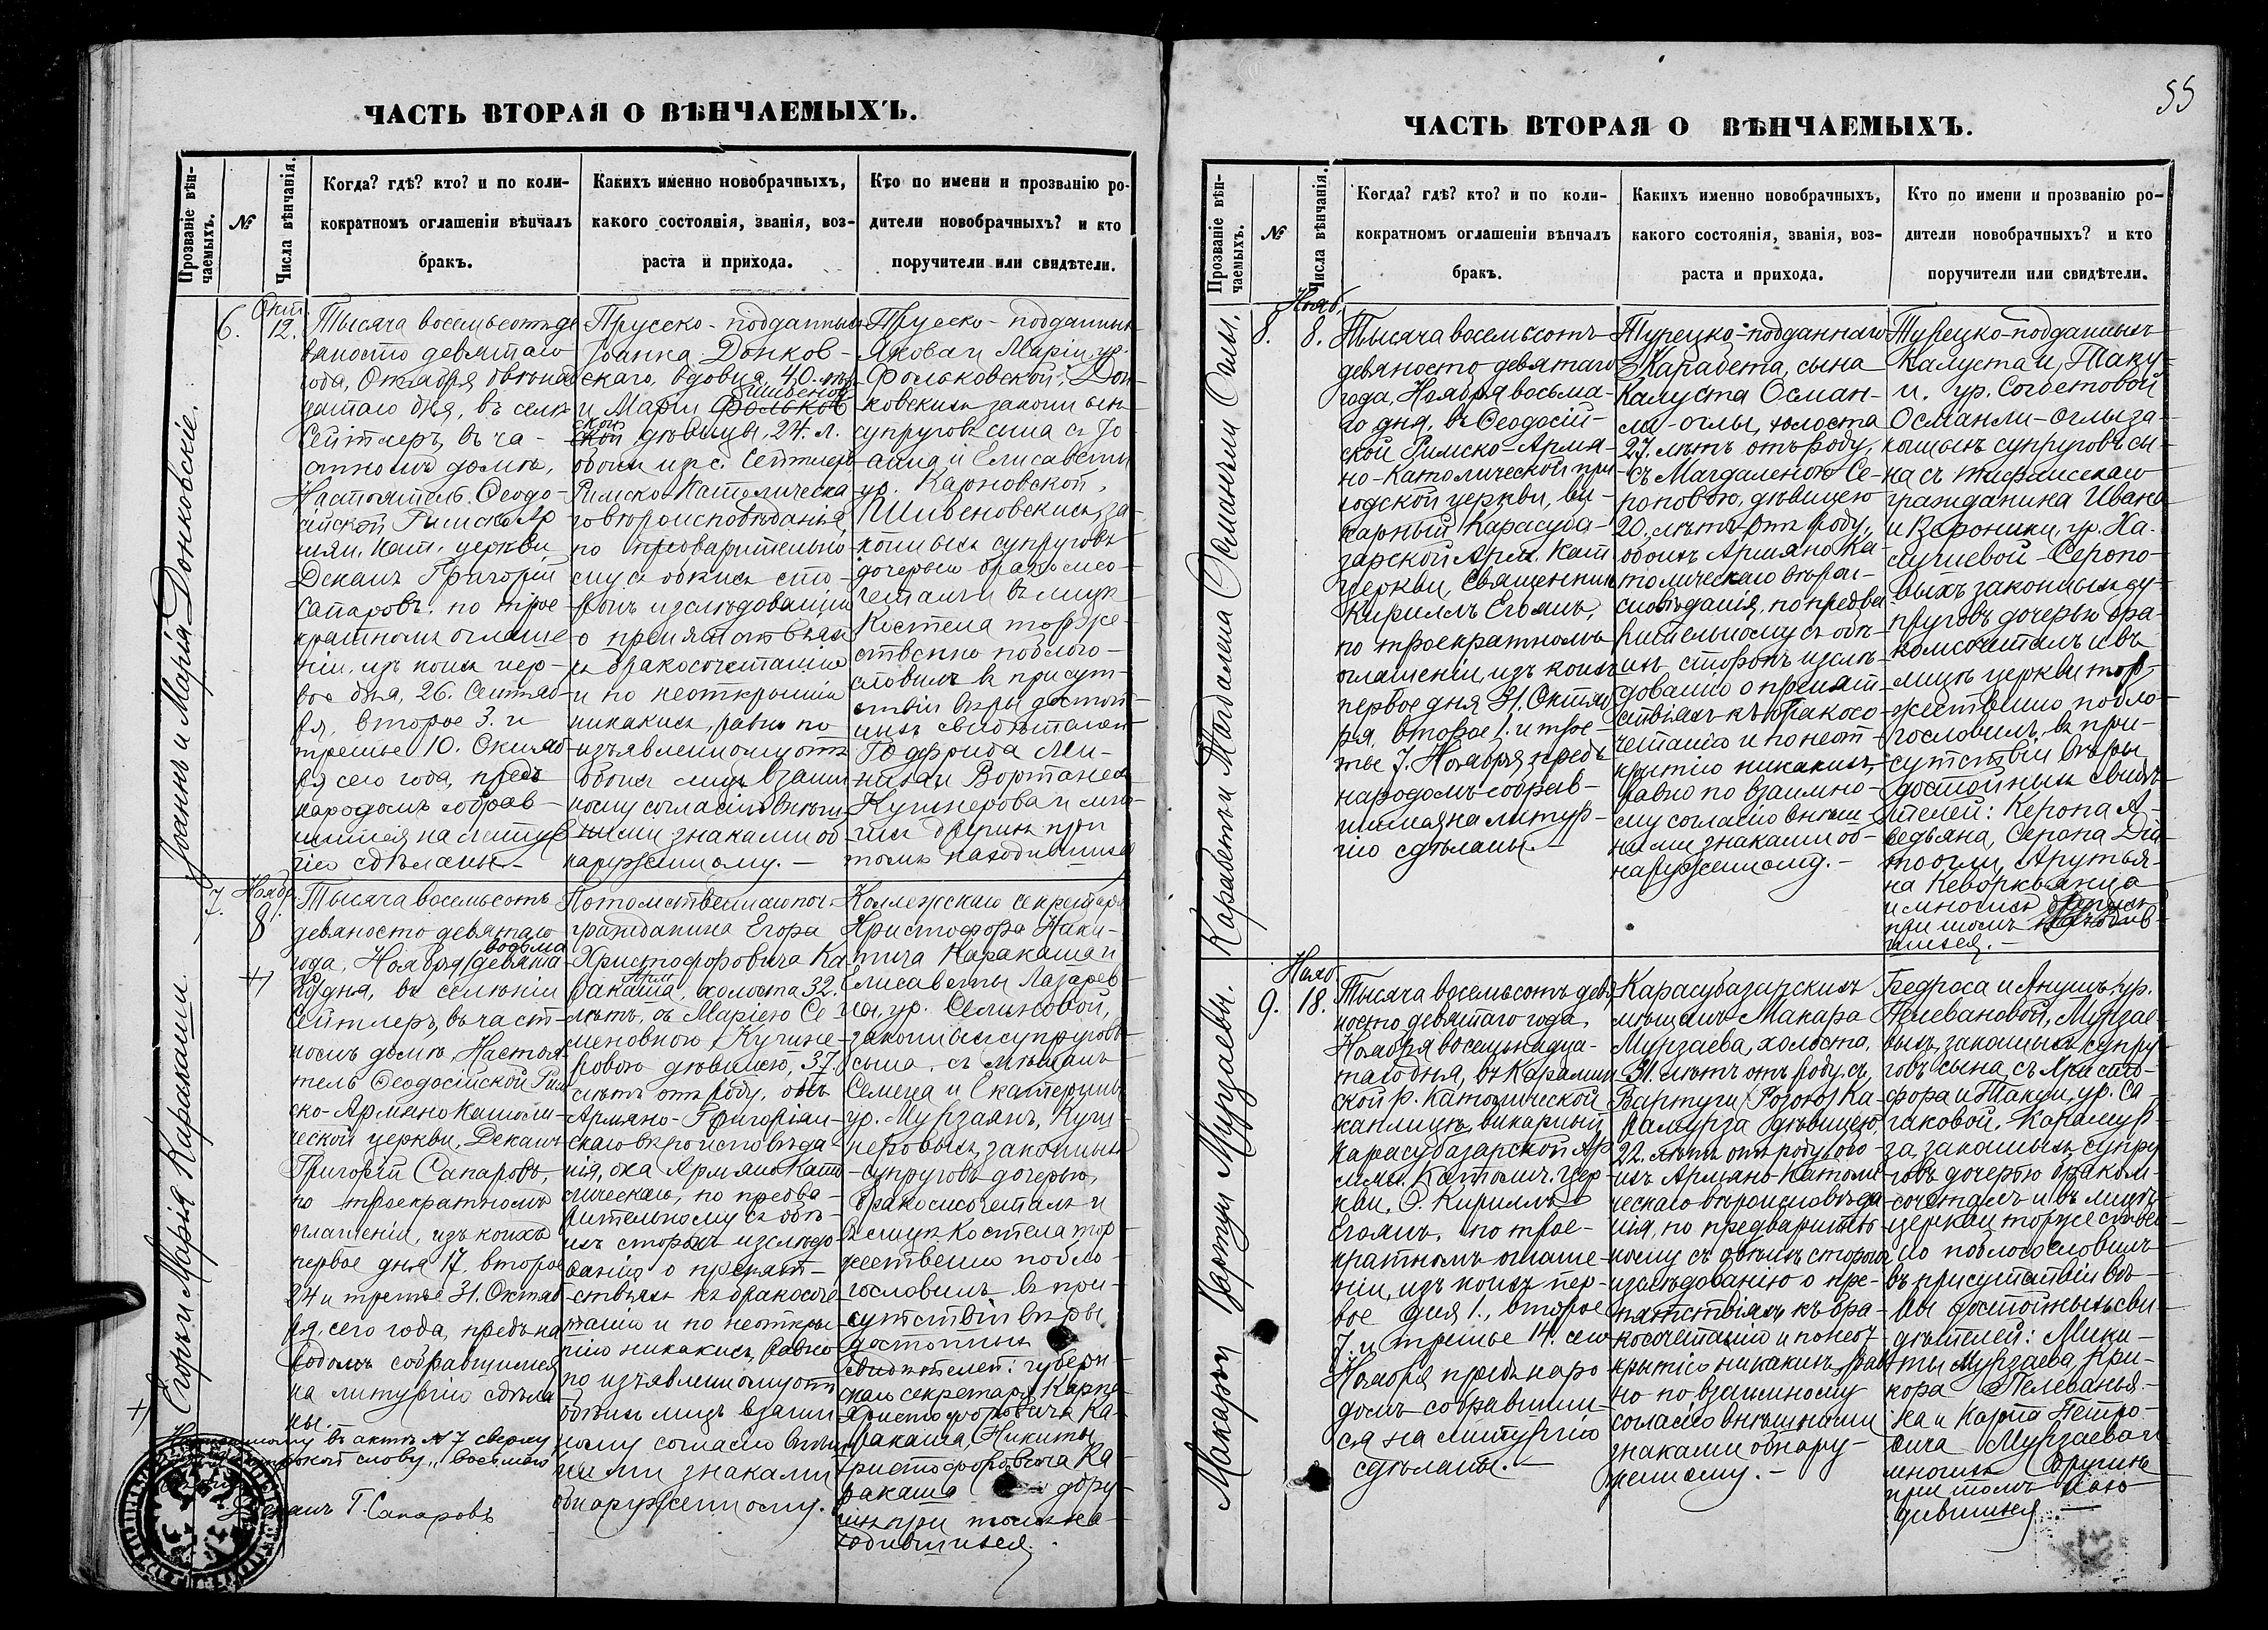 ЧАСТЬ ВТОРАЯ О ВѢНЧАЕМЫХЪ.
Прозваніе вѣн-
чаемыхъ.
№
Числа вѣнчанія.
Когда? гдѣ? кто? и по коли-
кократномъ оглашеніи вѣнчалъ
бракъ.
Какихъ именно новобрачныхъ,
какого состоянія, званія, воз-
раста и прихода.
Кто по имени и прозванію ро-
дители новобрачныхъ? и кто
поручители или свидѣтели.
Іоаннъ и Марія Донковскіе.
6.
Окт.
12.
Тысяча восемьсотъ де
вяносто девятаго
года, Октября двѣнад
цатаго дня, въ селѣ
Сейтлеръ, въ ча-
стномъ домѣ,
Настоятель Ѳеодо-
сійской Римско Ар
мян. Кат. церкви
Деканъ Григорій
Сапаровъ, по трое
кратномъ оглаше
ніи, изъ коихъ пер-
вое дня, 26. Сентяб-
ря, второе 3. и
третье 10. Октяб
ря сего года, предъ
народомъ собрав-
шимся на литур
гію сдѣланы.
Прусско-подданныхъ
Іоанна Донков-
скаго, вдовца, 40. лѣтъ
и Маріи Фольков
Шивенов
ской
ской дѣвицы, 24. л.
обоихъ изъ с. Сейтлеръ
Римско-Католическа
го вѣроисповѣданія,
по предварительно
му съ обѣихъ сто-
ронъ изслѣдованіи
о препятствіяхъ
къ бракосочетанію
и по неоткрытіи
никакихъ, равно по
изъявленному отъ
обоихъ лицъ взаим
ному согласію внѣш
ними знаками об
наруженному. —
Прусско-подданныхъ
Якова и Маріи ур.
Фольковской, Дон-
ковскихъ законныхъ
супруговъ сына съ Іо
анна и Елисаветы
ур. Карновской,
Шивеновскихъ, за-
конныхъ супруговъ
дочерью бракосо-
четалъ и въ лицѣ
Костела торже-
ственно поблаго-
словилъ въ присут-
ствіи вѣры достой-
ныхъ свидѣтелей
Годфрида Лей-
ниха и Вортанеса
Кушнерова и мно-
гихъ другихъ при
томъ находившихся
Егоръ и Марія Каракаши
7.
Ноябр.
8.
Тысяча восемьсотъ
девяносто девятаго
восьма
года, Ноября девята
го дня, въ селеніи
Сейтлеръ, въ част-
номъ домѣ, Настоя
тель Ѳеодосійской Рим
ско-Армяно Католи-
ческой церкви, Деканъ
Григорій Сапаровъ,
по троекратномъ
оглашеніи, изъ коихъ
первое дня 17. второе
24 и третье 31. Октяб
ря, сего года, предъ на
родомъ собравшимся
на литургію сдѣла
ны.
въ актѣ № 7 сверху
слову „восьмаго
Деканъ Г. Сапаровъ
Потомственнаго поч.
гражданина Егора
Христофоровича Ка
ракаша, холоста 32.
лѣтъ, съ Маріею Се
меновною Кушне-
ровою дѣвицею, 37.
лѣтъ отъ роду, онъ
Армяно-Григоріан-
скаго вѣроисповѣда
нія, она Армяно Като
лическаго, по предва-
рительному съ обѣ-
ихъ сторонъ изслѣдо-
ванію о препят-
ствіяхъ къ бракосоче
танію и по неоткры
тію никакихъ, равно
по изъявленному отъ
обоихъ лицъ взаим
ному согласію внѣш
ними знаками
обнаруженному.
Коллежскаго секретаря
Христофора Ники-
тича Каракаша и
Елисаветы Лазарев
ны, ур. Селиновой,
законныхъ супруговъ
сына, съ мѣщанъ
Семена и Екатерины
ур. Мурзаянъ, Куш-
неровыхъ, законныхъ
супруговъ дочерью,
бракосочеталъ и
въ лицѣ Костела тор
жественно побла-
гословилъ въ при-
сутствіи вѣры
достойныхъ
свидѣтелей: губерн-
скаго секретаря, Карпа
Христофоровича Ка-
ракаша, Никиты
Христофоровича Ка-
ракаша дру-
гихъ при томъ на-
ходившихся.
55
ЧАСТЬ ВТОРАЯ О ВѢНЧАЕМЫХЪ.
Прозваніе вѣн-
чаемыхъ.
№
Числа вѣнчанія.
Когда? гдѣ? кто? и по коли-
кократномъ оглашеніи вѣнчалъ
бракъ.
Какихъ именно новобрачныхъ,
какого состоянія, званія, воз-
раста и прихода.
Кто по имени и прозванію ро-
дители новобрачныхъ? и кто
поручители или свидѣтели.
Карабетъ и Магдалена Османъли Оглы.
8.
Нояб.
8.
Тысяча восемьсотъ
девяносто девятаго
года, Ноября восьма-
го дня, въ Ѳеодосій-
ской Римско-Армя-
но-Католической при
ходской церкви, ви-
карный Карасуба-
зарской Арм. Кат.
церкви, Священникъ
Кириллъ Егоянъ,
по троекратномъ
оглашеніи, изъ коихъ
первое дня 31. Октяб
ря, второе 1. и тре-
тье 7. Ноября предъ
народомъ собрав-
шимся на литур-
гію сдѣланы.
Турецко-подданнаго
Карабета, сына
Калуста Осман-
ли-оглы, холоста
27. лѣтъ отъ роду,
съ Магдаленою Се-
роповою, дѣвицею
20. лѣтъ отъ роду,
обоихъ Армяно Ка-
толическаго вѣрои-
сповѣданія, по предва
рительному съ обѣ-
ихъ сторонъ изслѣ-
дованію о препят-
ствіяхъ къ бракосо
четанію и по неот-
крытію никакихъ,
равно по взаимно-
му согласію внѣш-
ними знаками об-
наруженному. —
Турецко-подданныхъ
Калуста и Таку-
и, ур. Согостовой
Османли-оглы за-
конныхъ супруговъ сы-
на съ тифлисскаго
гражданина Ивана
и Вероники, ур. На-
сушевой-Серопо-
выхъ законныхъ су-
пруговъ дочерью бра-
комсочеталъ и въ
лицѣ церкви тор-
жественно побла-
гословилъ, въ при-
сутствіи вѣры
достойныхъ свидѣ-
телей: Керопа А-
ведьяна, Серопа Дга-
тоогли, Арутью-
на Кеворкьянца
и многихъ другихъ
при томъ находив-
шихся. —
Макарій и Вартуи Мурзаевы.
9.
Нояб.
18.
Тысяча восемьсотъ девя
носто девятаго года,
Ноября восемьнадца-
таго дня, въ
ской р. Католической
каплицѣ, викарный
Карасубазарской Ар
мян. Католич. цер
кви, О. Кириллъ
Егоянъ, по трое-
кратномъ оглаше-
ніи, изъ коихъ пер-
вое дня 1., второе
7. и третье 14. сего
Ноября предъ наро
домъ собравшим-
ся на литургію
сдѣланы. —
Карасубазарскихъ
мѣщанъ Макара
Мурзаева, холоста,
31. лѣтъ отъ роду, съ
Вартуги (Розою) Ка-
рамурза дѣвицею,
22. лѣтъ отъ роду, обо
ихъ Армяно Католи
ческаго вѣроисповѣда
нія, по предваритель
ному съ обѣихъ сторонъ
изслѣдованію о пре-
пятствіяхъ къ бра-
косочетанію и по неот
крытію никакихъ, рав
но по взаимному
согласію внѣшними
знаками обнару-
женному. —
Бедроса и Анушъ, ур.
Пелевановой, Мурзае-
выхъ, законныхъ супру
говъ сына, съ Христо-
фора и Такуи, ур. Са-
гаковой, Карамур-
за, законныхъ супру
говъ дочерью бракомъ
сочеталъ и въ лицѣ
церкви торжествен-
но поблагословилъ
въ присутствіи вѣ-
ры достойныхъ сви-
дѣтелей: Мики-
ты Мурзаева, Кри-
кора Пелеванья-
на и Карпа Петро-
вича Мурзаева и
многихъ другихъ
при томъ нахо-
дившихся. —